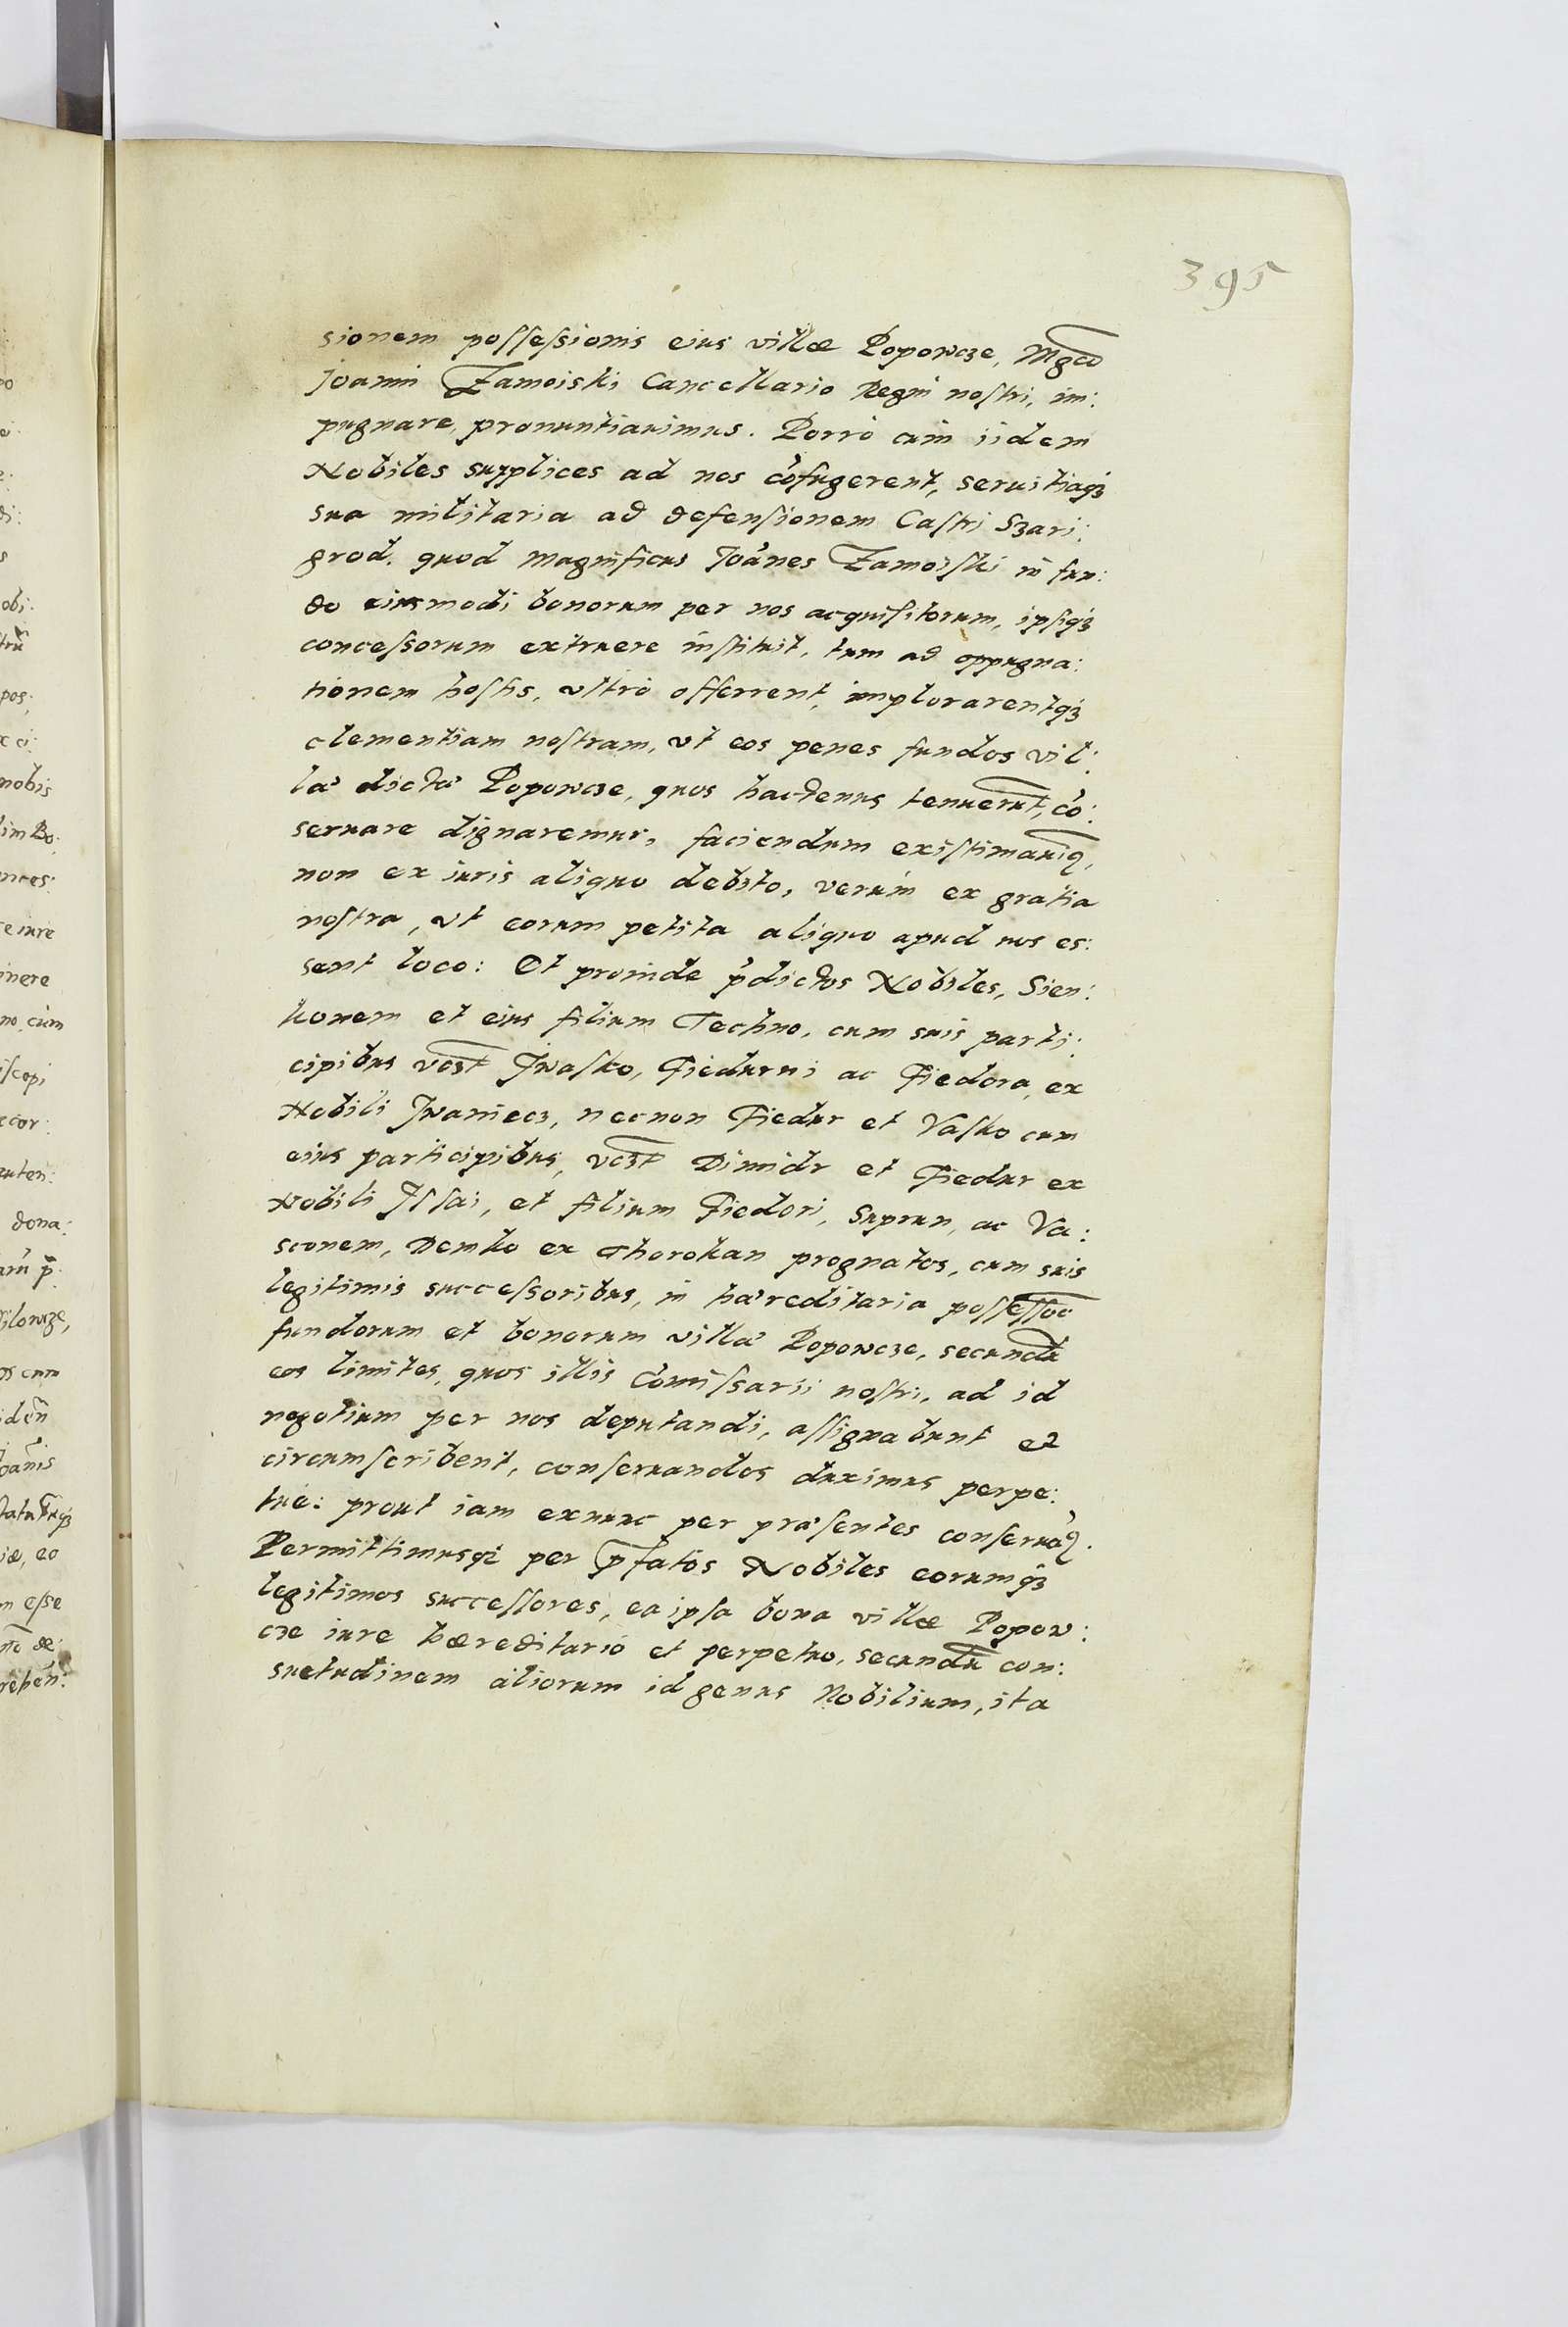 395
sionem possessionis eius villæ Popowcze, Mgco
Joanni Zamoiski Cancellario Regni nostri, im:
pugnare, pronuntiauimus. Porrò cum iidem
Nobiles supplices ad nos cõfugerent, seruitiaq3
sua militaria ad defensionem Castri Szari:
grod. quod Magnificus Joãnes Zamoiski in fun:
do eiusmodi bonorum per nos acquisitorum, ipsiq3
concessorum extruere instituit, tum ad oppugna:
tionem hostis, vltrò offerrent, implorarentq3
clementiam nostram, vt eos penes fundos vil:
læ dictæ Popowcze, quos hactenus tenuerũt, cõ:
seruare dignaremur, faciendum existimauiq,
non ex iuris aliquo debito, verùm ex gratia
nostra, vt eorum petita aliquo apud nos es:
sent loco: Et proinde p̃dictos Nobiles, Sien:
konem et eius filium Techno, cum suis parti:
cipibus vcz̃t Jwasko, Fiedurni ac Fiedora, ex
Nobili Jwaniecz, necnon Fiedur et Vasko cum
eius participibus, vcz̃t Dimidr et Fiedur ex
Nobili Jssai, et filium Fiedori, Suprun, ac Va:
sconem, Demko ex Thorokan prognatos, cum suis
legitimis successoribus, in hæreditaria possessioe
fundorum et bonorum villæ Popowcze, secundũ
eos limites, quos illis Cõmissarii nostri, ad id
negotium per nos deputandi, assignabunt et
circumscribent, conseruandos duximus perpe:
tuè: prout iam exnunc per præsentes conseruãq.
Permittimusq3 per p̃fatos Nobiles eorumq3
legitimos successores, ea ipsa bona villæ Popow:
cze iure hæreditariò et perpetuo, secundũ con:
suetudinem aliorum id genus Nobilium, ita